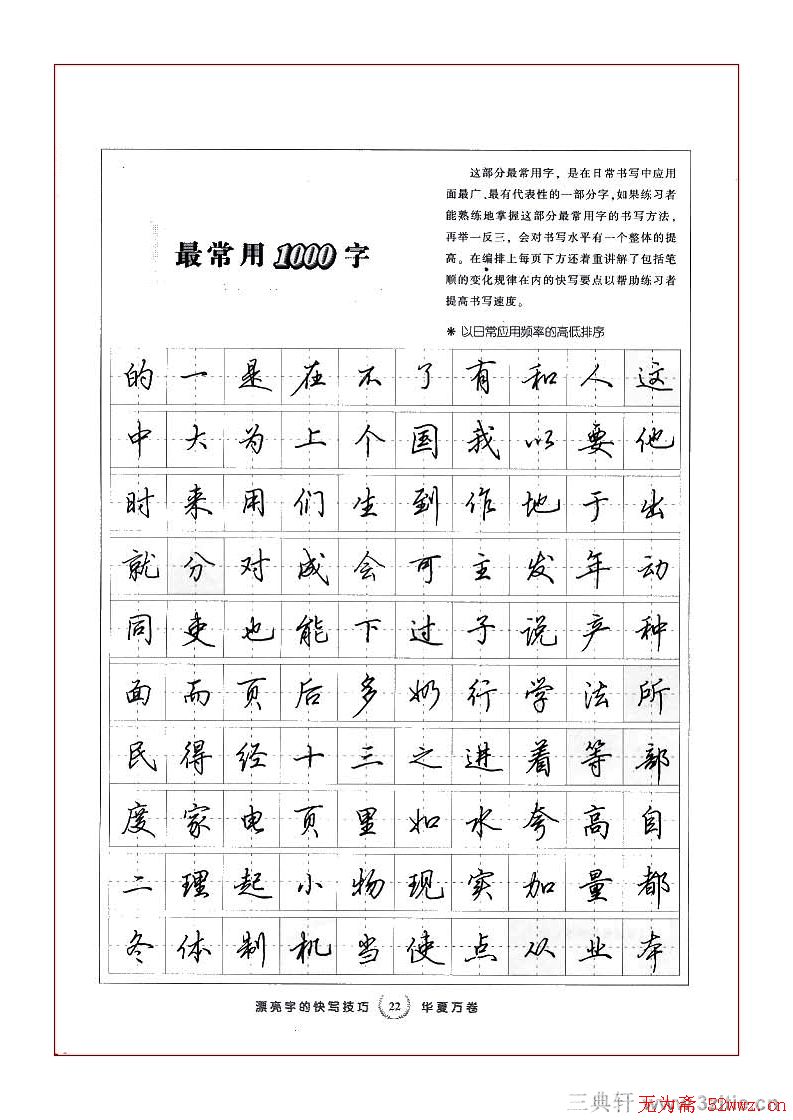 最常用1000字
这部分最常用字，是在日常书写中应用
面最广、最有代表性的一部分字，如果练习者
能熟练地掌握这部分最常用字的书写方法，
再举一反三，会对书写水平有一个整体的提
高。在编排上每页下方还着重讲解了包括笔
顺的变化规律在内的快写要点以帮助练习者
提高书写速度。
＊ 以日常应用频率的高低排序
的 一 是 在 不 了 有 和 人 这
中 大 为 上 个 国 我 以 要 他
时 来 用 们 生 到 作 地 于 出
就 分 对 成 会 可 主 发 年 动
同 吏 也 能 下 过 子 说 产 种
面 而 页 后 多 奶 行 学 法 所
民 得 经 十 三 之 进 着 等 部
度 家 电 页 里 如 水 夸 高 自
二 理 起 小 物 现 实 加 量 都
冬 体 制 机 当 使 点 从 业 本
漂亮字的快写技巧 22 华夏万卷
三典轩
无为斋 52wwz.cn